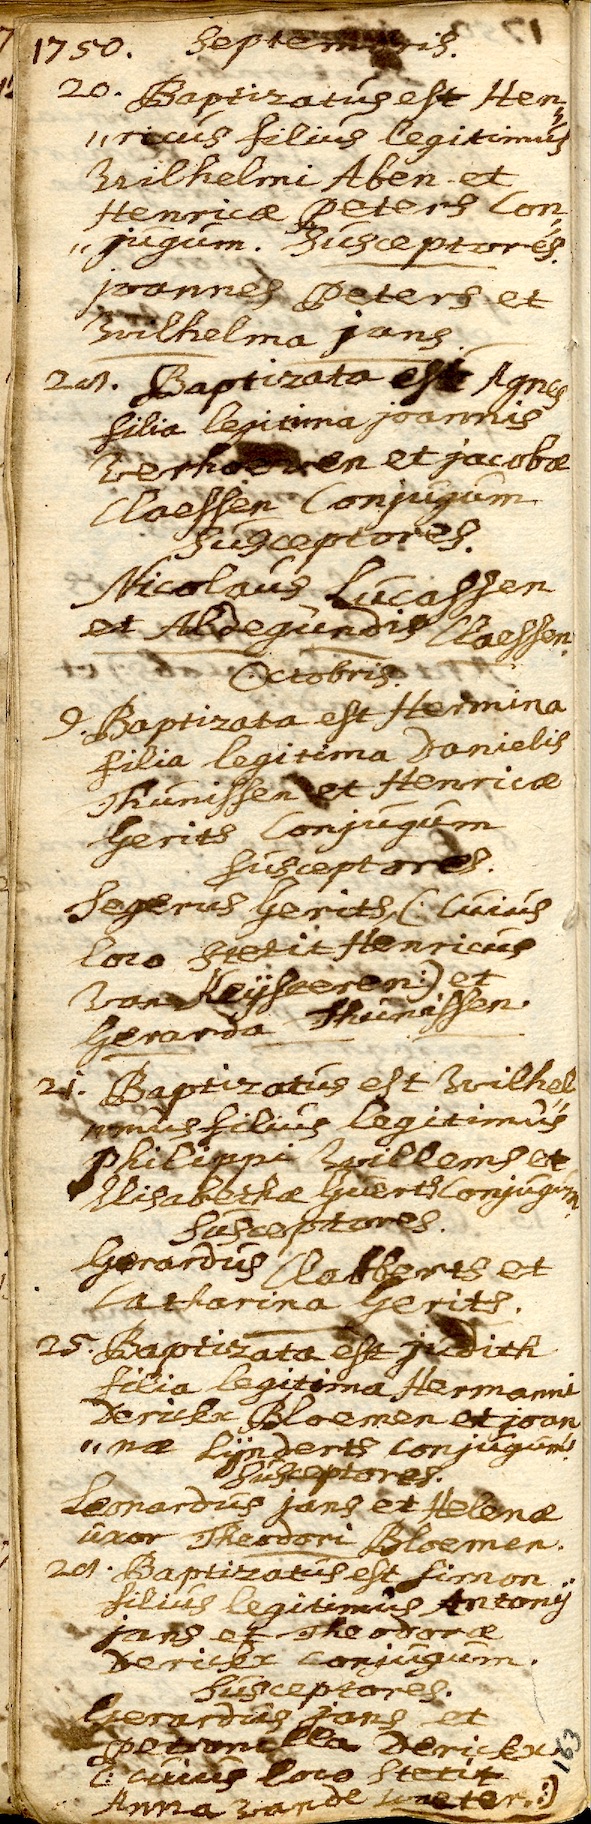 1750. Septembris.
20. Baptizatus est Hen„
„ricus filius legitimus
Wilhelmi Aben et
Henricæ Peters Con„
„jugum. Susceptores.
joannes Peters et
Wilhelma jans.
Baptizata est Agnes
filia legitima joannis
Verhoeven et jacobæ
Claessen Conjugum
Susceptores.
Nicolaus Lucassen
et Aldegundis Claessen.
Octobris.
9. Baptizata est Hermina
filia legitima Danielis
Thunissen et Henricæ
Gerits Conjugum
Susceptores.
Segerus Gerits, (: cuius
loco stetit Henricus
van Keijsteren:) et
Gerarda Thunissen.
21. Baptizatus est Wilhel„
„mus filius legitimus
Philippi Willems et
Elisabethæ Geerts Conjugum.
Susceptores.
Gerardus Clabbers et
Catharina Gerits.
25. Baptizata est judith
filia legitima Hermanni
Derickx Bloemen et joan
„næ Lijnderts conjugum.
Susceptores.
Leonardus jans et Helenæ
uxor Theodori Bloemen.
Baptizatus est Simon
filius legitimus Antonij
jans et Theodoræ
Derickx conjugum.
Susceptores.
Gerardus jans et
Petronella Derickx
(: cuius loco stetit
Anna van de :)
163